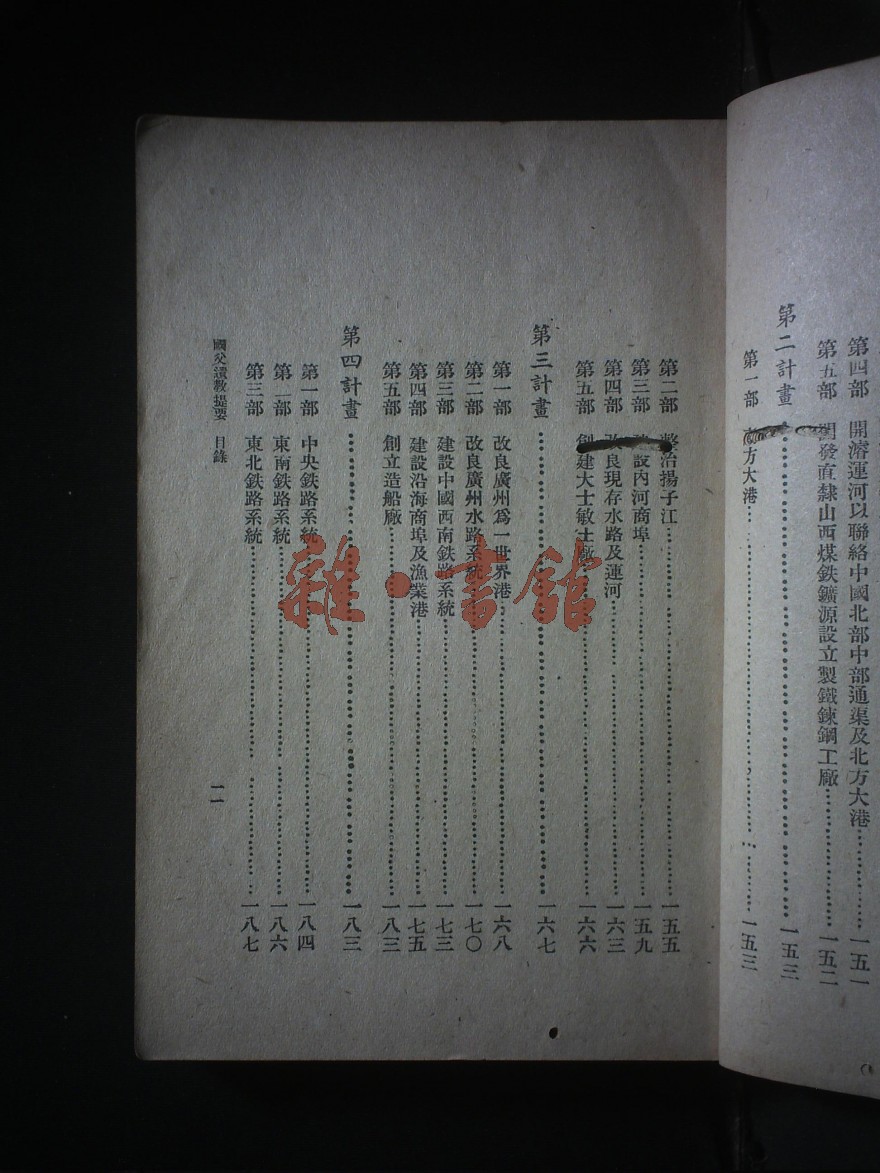 第四部 開濬運河以聯絡中國北部中部通渠及北方大港……一五一
第五部 開發直隸山西煤鉄鑛源設立製鐵鍊鋼工廠……一五二
第二計畫……一五三
第一部 方大港……一五三
第二部 整治揚子江……一五五
第三部 建設內河商埠……一五九
第四部 改良現存水路及運河……一六三
第五部 創建大士敏土廠……一六六
第三計畫……一六七
第一部 改良廣州爲一世界港……一六八
第二部 改良廣州水路系統……一七〇
第三部 建設中國西南鉄路系統……一七三
第四部 建設沿海商埠及漁業港……一七五
第五部 創立造船廠……一八三
第四計畫……一八三
第一部 中央鉄路系統……一八四
第二部 東南鉄路系統……一八六
第三部 東北鉄路系統……一八七
國父遺教提要 目錄
二
雜·書館